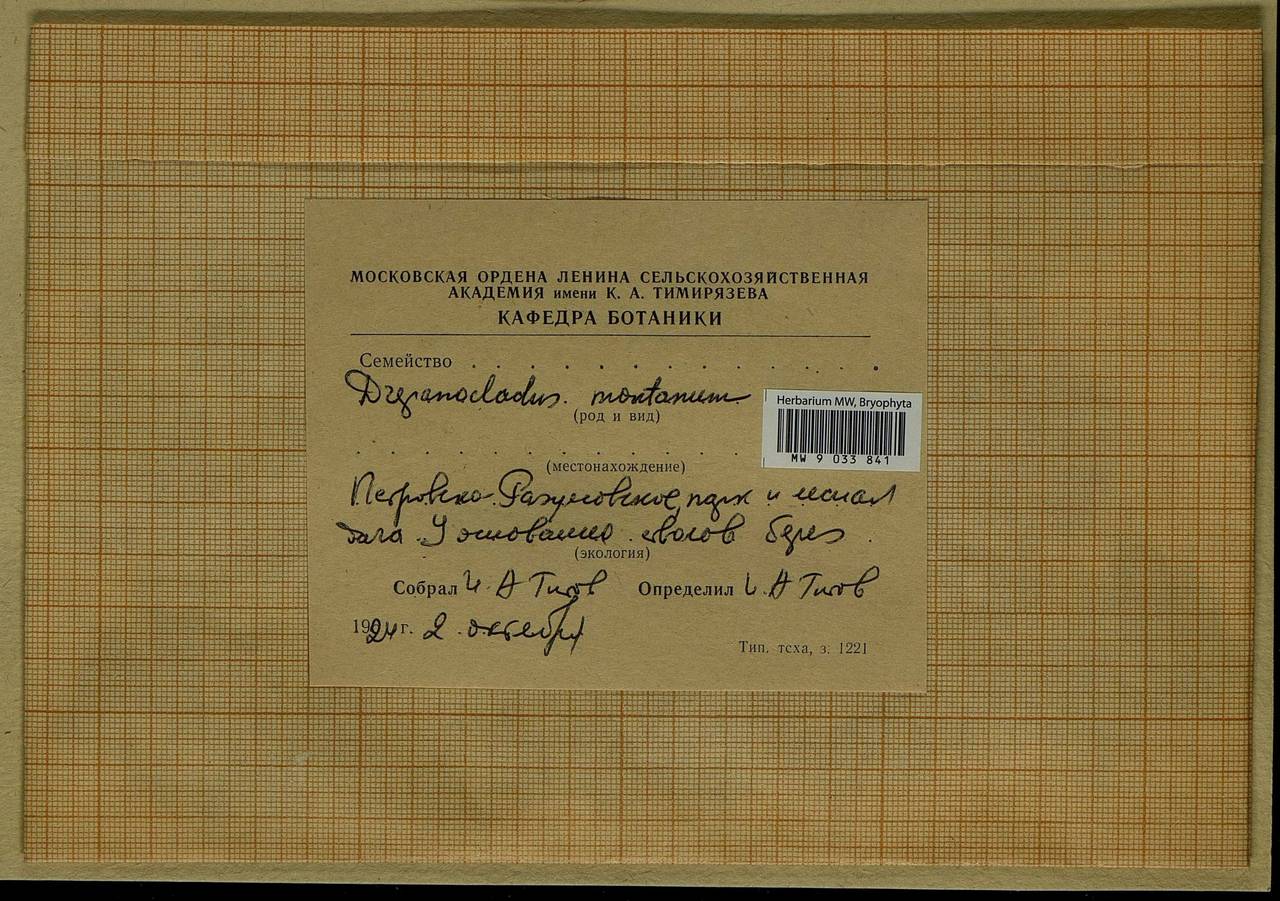 МОСКОВСКАЯ ОРДЕНА ЛЕНИНА СЕЛЬСКОХОЗЯЙСТВЕННАЯ
АКАДЕМИЯ имени К. А. ТИМИРЯЗЕВА
КАФЕДРА БОТАНИКИ
Семейство
Drepanocladus montanum
(род и вид)
Herbarium MW, Bryophyta
MW 9 033 841
(местонахождение)
Петровско-Разумовское, парк и лесная
дача. У основания стволов берез.
(экология)
Собрал И. А Титов Определил И. А Титов
1924 г. 2 октября
Тип. тсха, з. 1221